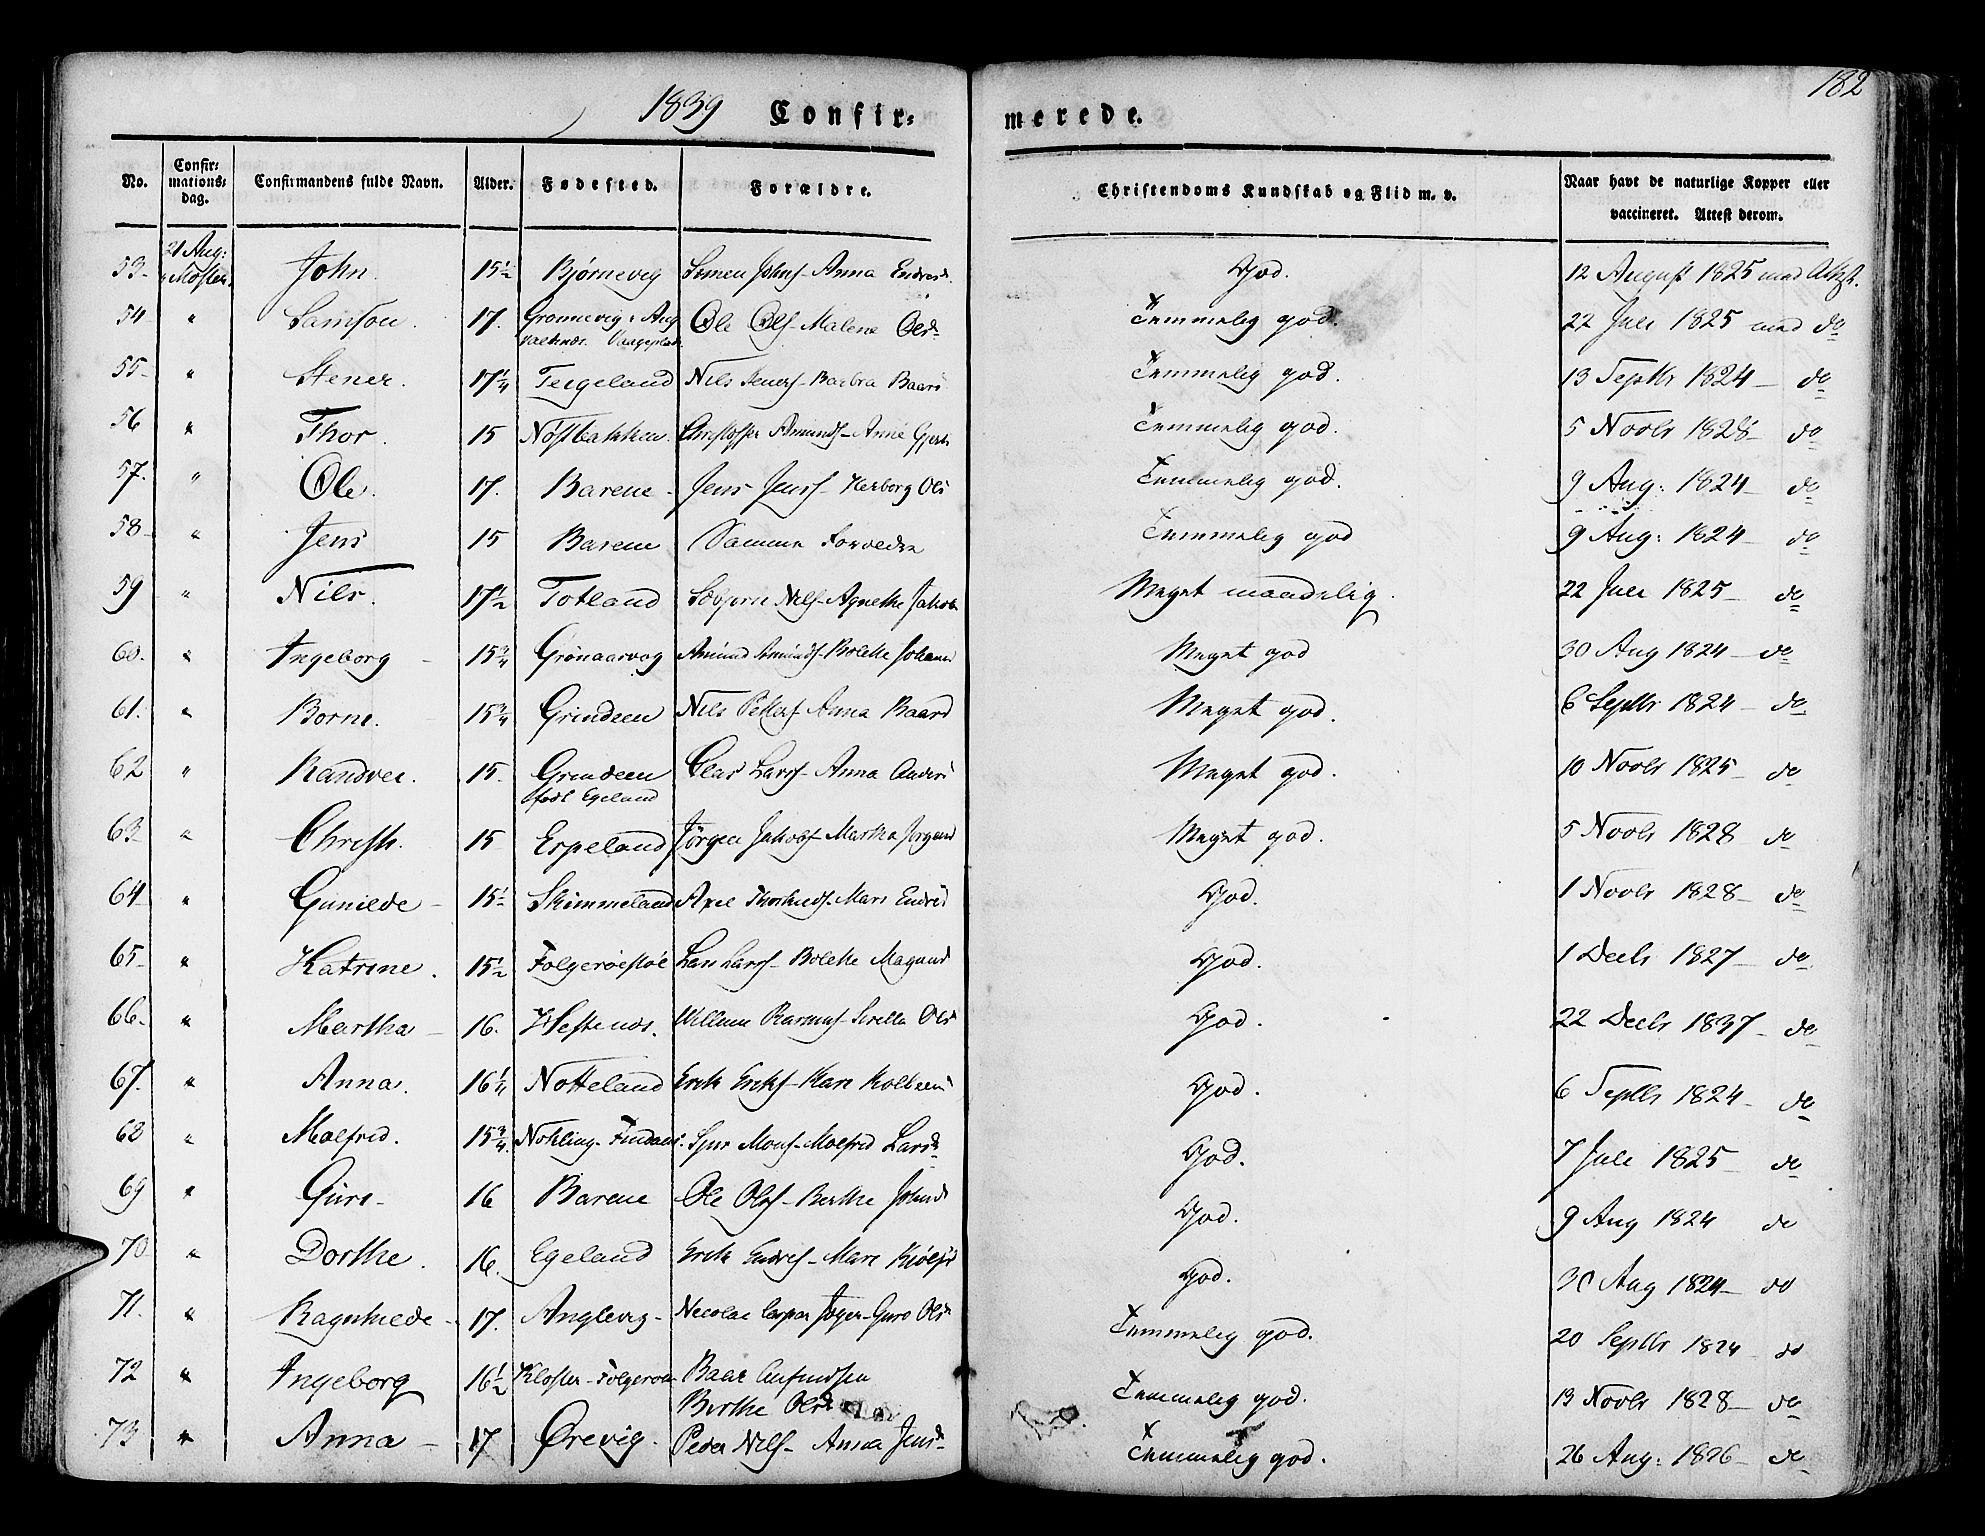 182
1839 Confir= merede.
No. Confir=mations=dag. Confirmandens fulde Navn. Alder. Fødested. Forældre. Christendoms Kundskab og Flid m. v. Naar havt de naturlige Kopper eller vaccineret. Attest derom.
53- 21 Aug: Moster. John. 15½ Bjørnevig Johns- Anna Endres God. 12 August 1825 med Attst.
54 " Samson. 17. Grønnevig Aug Ole Ols- Malene Olsd Temmelig god. 22 Juli 1825 med do
55- " Stener. 17¼ Teigeland Nils Barbra Baars Temmelig god. 13 Septbr 1824- do
56 " Thor. 15 Nøstbakken. Christoffer Amunds- Anne Temmelig god. 5 Novbr 1828- do
57. " Ole. 17. Barene- Jens Jens- Herborg Ols Temmelig god. 9 Aug: 1824- do
58- " Jens 15 Barene Samme Forældre Temmelig god 9 Aug: 1824- do
59 " Nils. 17½ Totland Nils- Agnethe Jakob Meget maadelig. 22 Juli 1825- do
60. " Ingeborg - 15¾ Grønaarvog Amund Amunds- Bolette Johanns Meget god 30 Aug 1824- do
61. " Borne. 15¾ Grindeen Nils Petters Anna Baard Meget god. 6 Septbr 1824- do
62 " Randvei. 15- Grindeen Lars- Anna Meget god. 10 Novbr 1825- do
født Egeland
63- " Christi. 15 Espeland Jørgen Jakobs- Martha Meget god. 5 Novbr 1828 do
64 " Gunilde- 15½ Skimmeland Axel Endres God. 1 Novbr 1828- do
65- " Katrine. 15½ Folgerøestøe Lars Lars- Bolette Magnus God. 1 Decbr 1827- do
66. " Martha- 16. Hestenæs. Willum Rasmus- Sirella Ols God. 22 Decbr 1837- do
67. " Anna. 16¼ Notteland Erik Eriks- Kari God. 6 Septbr 1824- do
68 " Malfred. 15¾. Sjur Mons- Malfred Larsd God. 7 Juli 1825- do
69 " Guri- 16 Barene Ole Ols- Berthe God. 9 Aug 1824 do
70 " Dorthe. 16. Egeland Erik Endres- Mari God. 30 Aug 1824- do
71. " Ragnhilde- 17. Anglevig- Nicolai Casper Guro Ols Temmelig god. 20 Septbr 1824- do
72 " Ingeborg 16½ Kloster- Baar
Berthe Olsd Temmelig god. 13 Novbr 1828- do
73 " Anna- 17 Ørevig. Peder Nils- Anna Jensd- Temmelig god. 26 Aug: 1826- do